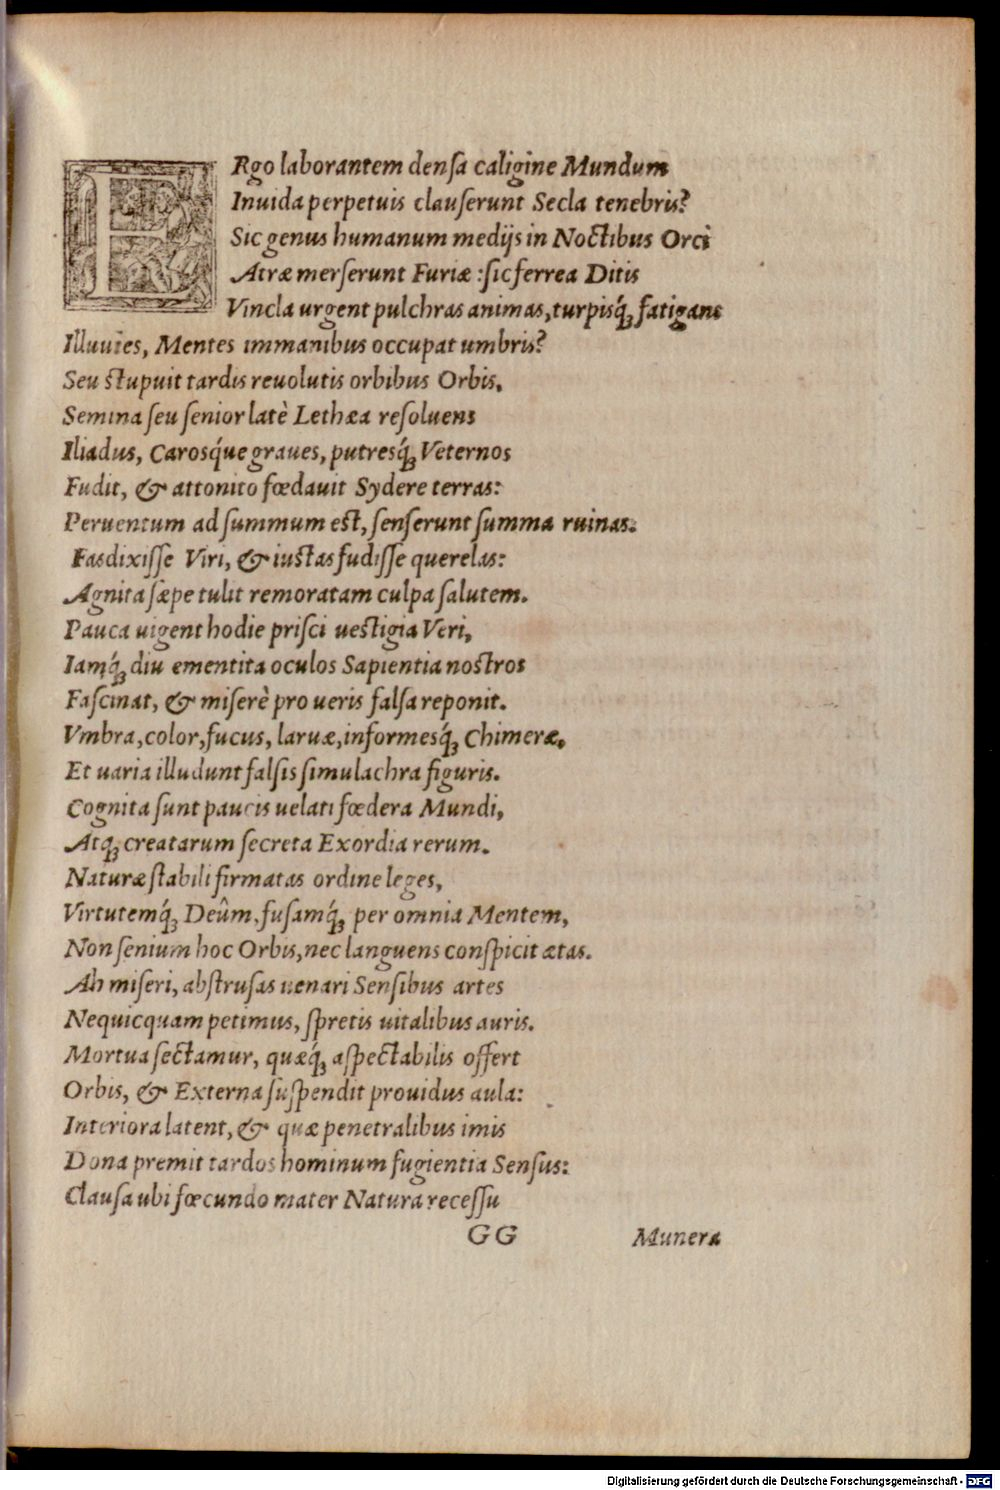 ERgo laborantem denſa caligine Mundum
Inuida perpetuis clauſerunt Secla tenebris?
Sic genus humanum medijs in Noctibus Orci
Atræ merſerunt Furiæ : ſic ferrea Ditis
Vincla urgent pulchras animas, turpisq́; fatigans
Illuuies, Mentes immanibus occupat umbris?
Seu ſtupuit tardis reuolutis orbibus Orbis,
Semina ſeu ſenior latè Lethæa reſoluens
Iliadus, Carosq́ue graues, putresq́; Veternos
Fudit, & attonito fœdauit Sydere terras:
Peruentum ad ſummum eſt, ſenſerunt ſumma ruinas.
Fas dixiſſe Viri, & iuſtas fudiſſe querelas:
Agnita ſæpe tulit remoratam culpa ſalutem.
Pauca uigent hodie priſci ueſtigia Veri,
Iamq́; diu ementita oculos Sapientia noſtros
Faſcinat, & miſerè pro ueris falſa reponit.
Vmbra, color, fucus, laruæ, informesq́; Chimeræ,
Et uaria illudunt falſis ſimulachra figuris.
Cognita ſunt paucis uelati fœdera Mundi,
Atq; creatarum ſecreta Exordia rerum.
Naturæ ſtabili firmatas ordine leges,
Virtutemq́; Deûm, fuſamq́; per omnia Mentem,
Non ſenium hoc Orbis, nec languens conſpicit ætas.
Ah miſeri, abſtruſas uenari Senſibus artes
Nequicquam petimus, ſpretis uitalibus auris.
Mortua ſectamur, quæq́; aſpectabilis offert
Orbis, & Externa ſuſpendit prouidus aula:
Interiora latent, & quæ penetralibus imis
Dona premit tardos hominum fugientia Senſus:
Clauſa ubi fœcundo mater Natura receſſu
GG Munera
Digitalisierung gefördert durch die Deutsche Forschungsgemeinschaft - DFG